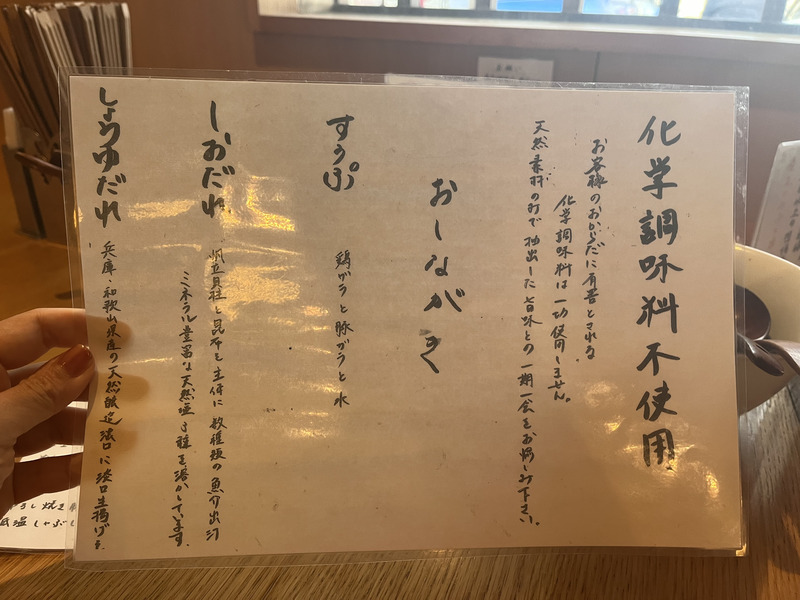 化学調味料不使用
お客様のおからだに有害とされる
化学調味料は一切使用しません。
天然素材のみで抽出した旨味との一期一会をお楽しみ下さい。
おしながき
すうぷ
鶏ガラと豚ガラと水
しおだれ
帆立貝柱と昆布を主体に数種類の魚介出汁
ミネラル豊富な天然塩
種を溶かしています。
しょうゆだれ
兵庫・和歌山県産の天然醸造濃口に淡口生揚げを